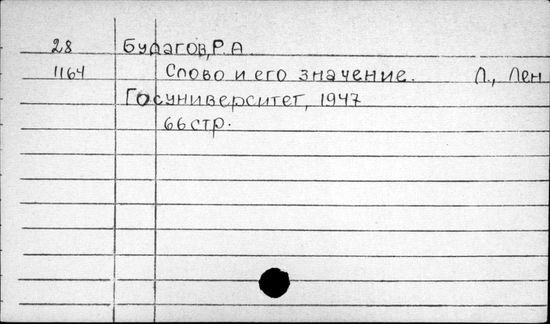 28 Будагов, Р. А
1164 Слово и его значение. Л., Лен
Госуниверситет, 1947
66 стр.